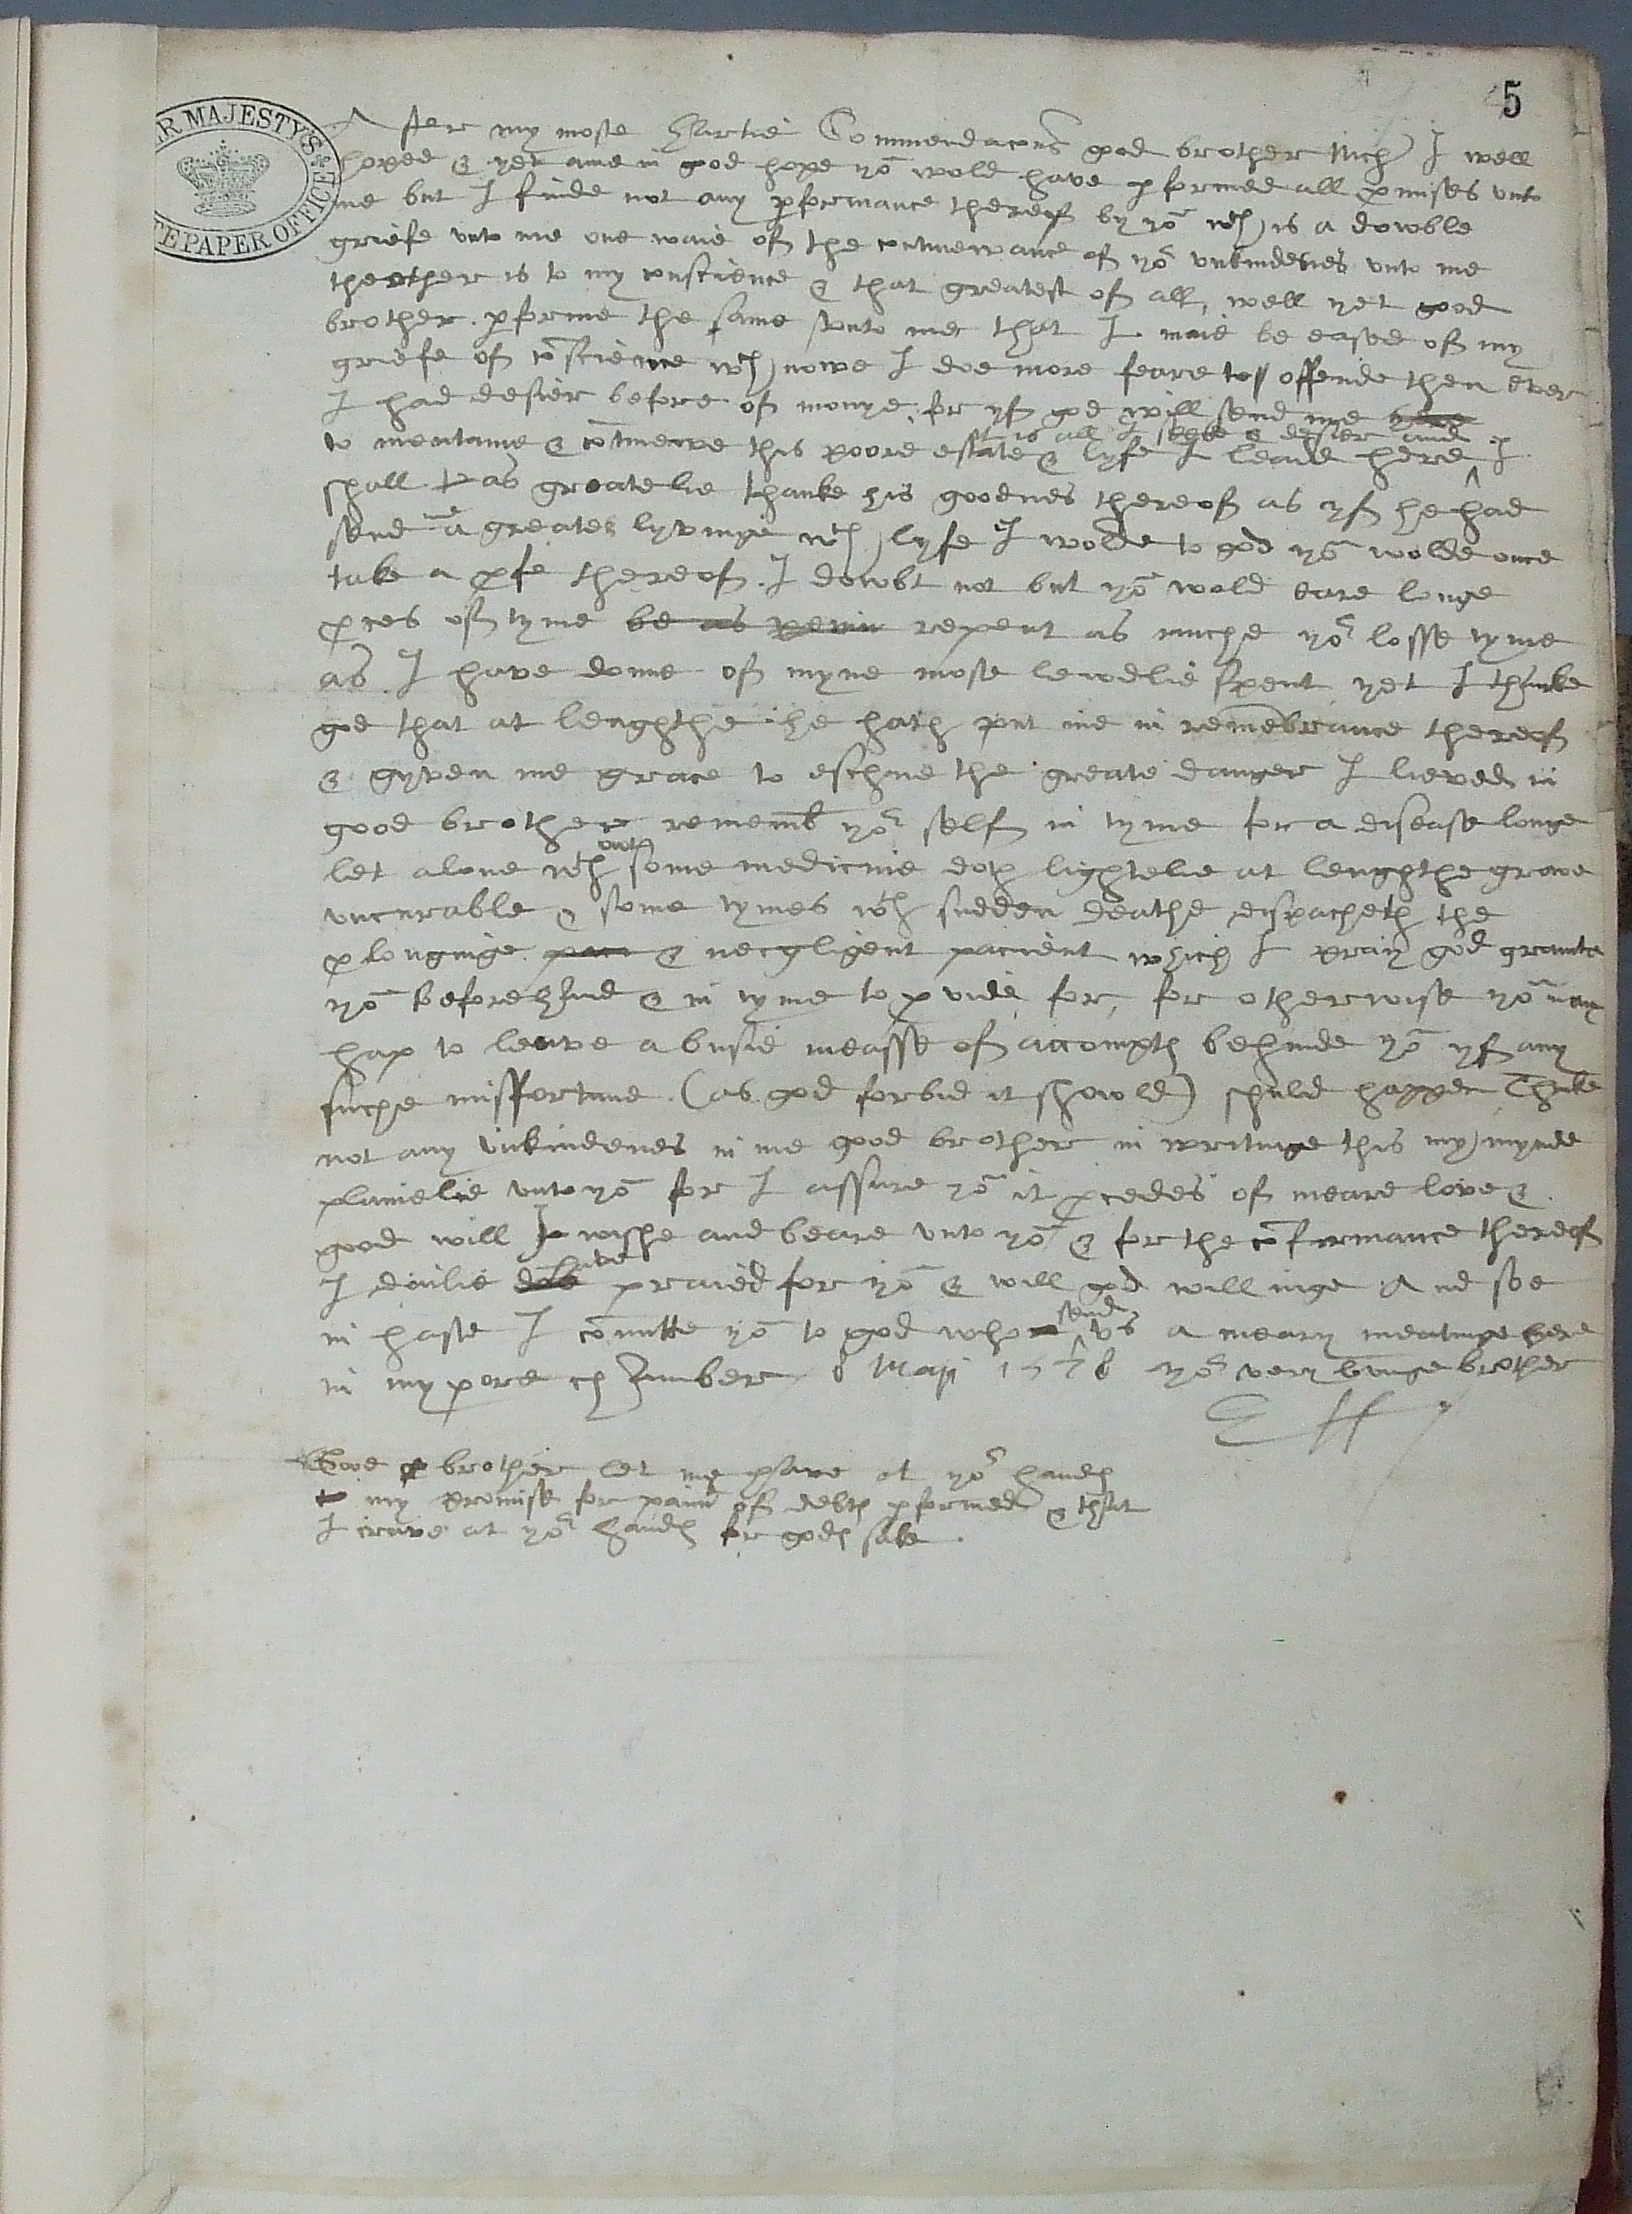 5
HER MAJESTY'S STATE PAPER OFFICE
After my moste hartie Commendacons good brother Nich I well
hoped & yet ame in good hope yo wold have pformed all pmises vnto
me but I finde not any pformance thereof by yo wch is a dowble
griefe vnto me one waie of the continewance of yor vnkindenes vnto me
theother is to my conscience & that greatest of all, well yet good
brother pforme the same vnto me that I maie be eased of my
griefe of conscience wch nowe I doe more feare to offende then ever
I had desier before of monye for yf god will send me
to mentaine & contineue this poore estate & lyfe I leade here it is all I seeke & desier and I
shall as greatelie thanke his goodnes thereof as yf he had
send me a greater lyvinge wch lyfe I wolde to god yo wolde once
take a pfe thereof. I dowbt not but yo wold eare longe
pces of tyme be as repent as muche yor losse tyme
as I have donne of myne moste lewdlie spent yet I thanke
god that at lenghthe he hath put me in remembrance thereof
& gyven me grace to eschue the greate danger I lieved in
good brother rememb yor self in tyme for a disease longe
let alone wthout some medicine doth lightelie at lenghthe growe
vncurable & some tymes wth sudden deathe dispacheth the
plonginge & necgligent pacient which I pray god graunte
yo beforehand & in tyme to pvide for, for otherwise yo may
hap to leave a busie measse of accompth behinde yo yf any
suche misffortune (as god forbid it showld) shuld happen Thinke
not any vnkindenes in me good brother in writinge this my mynde
plainelie vnto yo for I assure yo it pcedes of meare love &
good will I wishe and beare vnto yo & for the confirmance thereof
I dailie have praied for yo & will god willinge And soe
in haste I comitte yo to god who send vs a meary meatinge here
in my pore chamber 8 Maij 1578 yor very lovinge brother
EH
Good brother let me have at yor handes
my promise for paimt of debtes pformed & that
I crave at yor handes for godes sake.